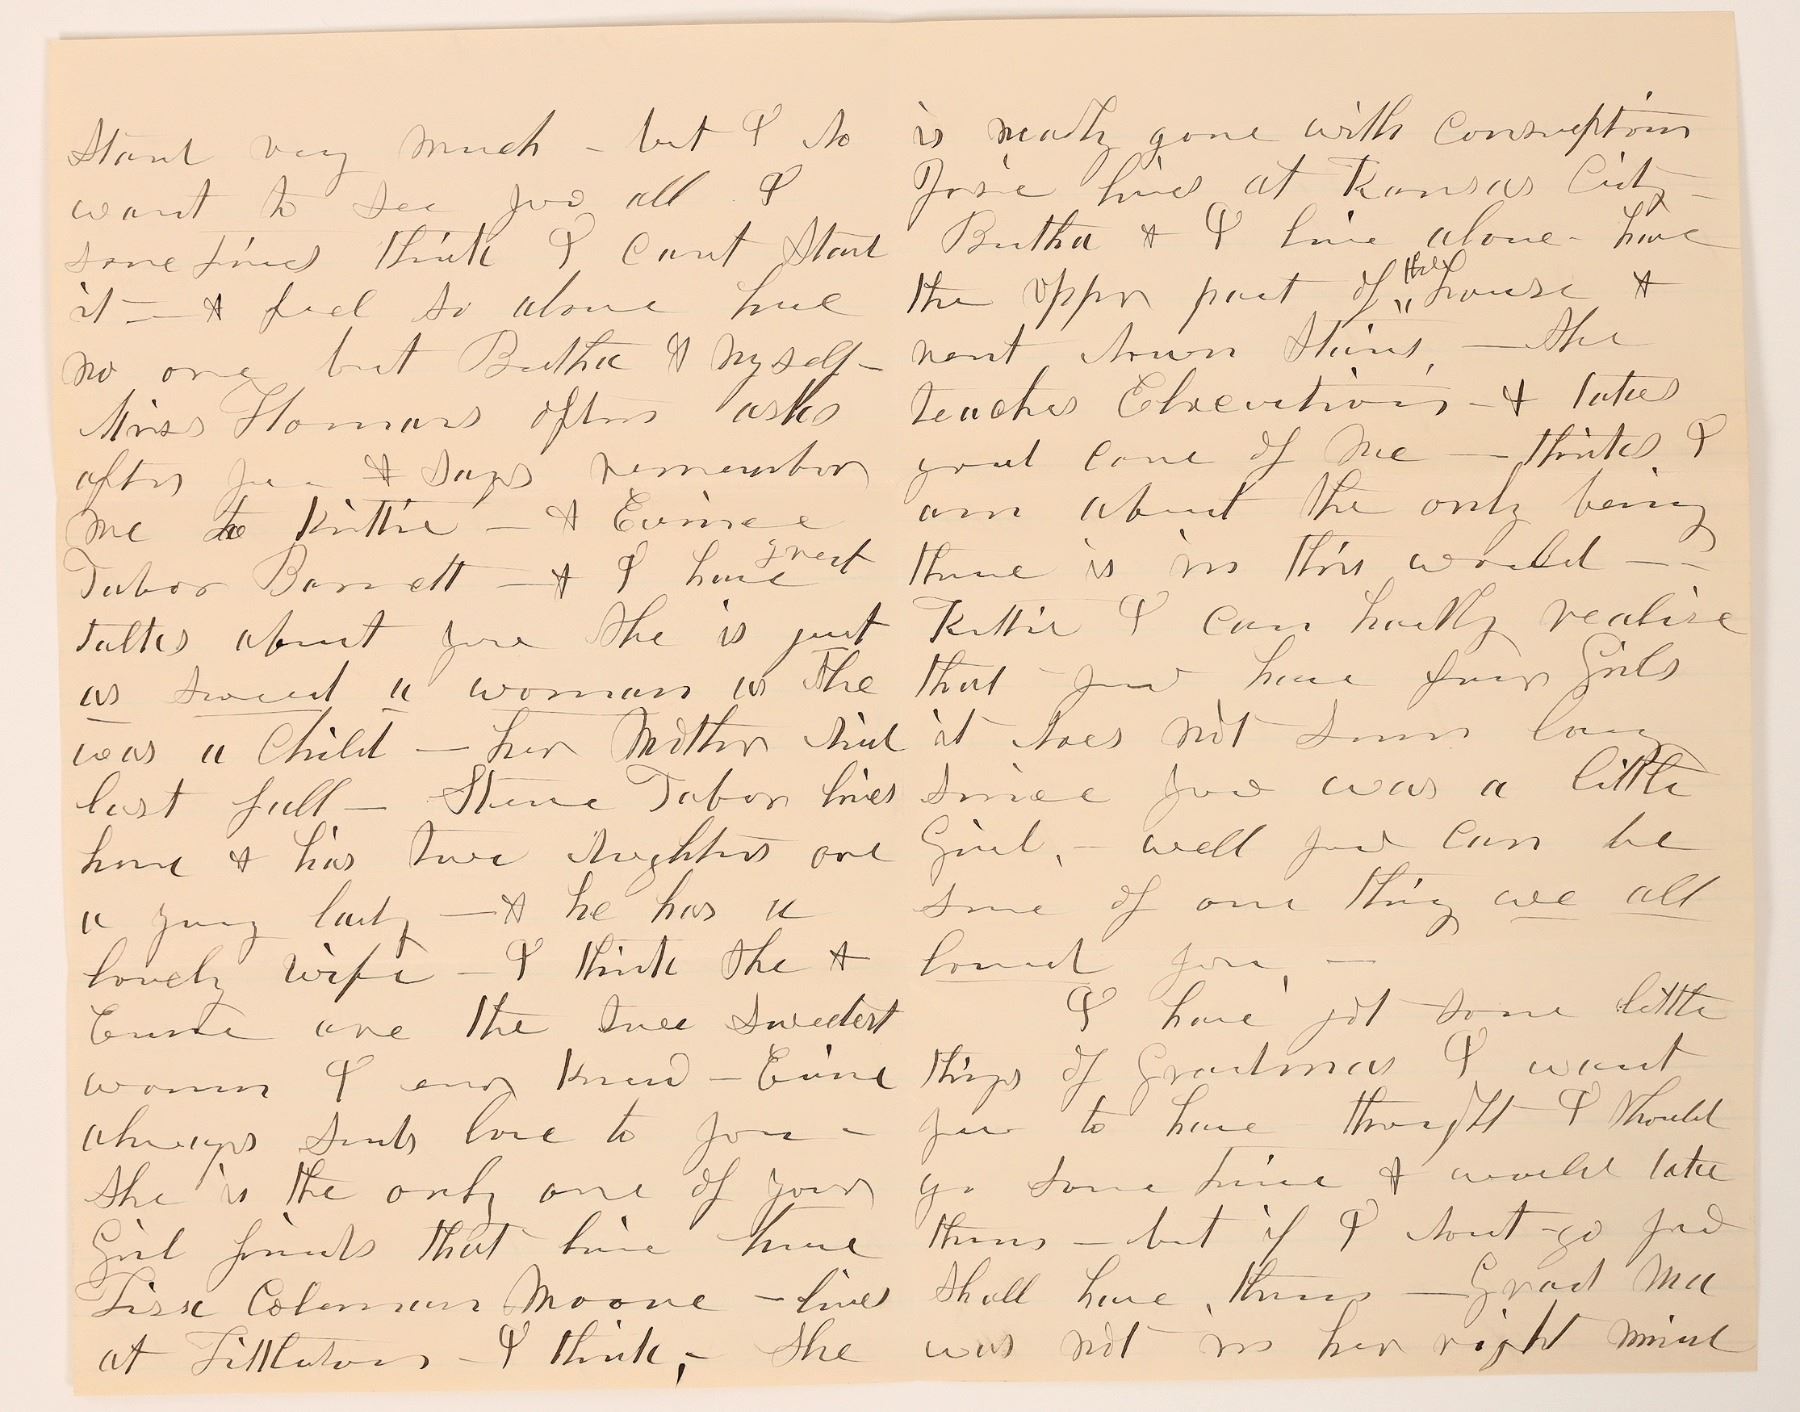 Stand very much - but I do
want to see you all I
some times think I cant Stand
it - & feel so alone here
no one but Bertha & myself -
Miss Flomans often asks
after you & says remember
me to Kittie - & Eunice
Tabor Barrett - & I have great
talks about you She is just
as sweet a woman as She
was a Child - her Mother died
last fall - Steve Tabor lives
here & has two daughters one
a young lady - & he has a
lovely wife - I think She &
Eunice are the two sweetest
women I ever knew - Eunice
always sends love to you -
She is the only one of your
Girl friends that live here
Lissa Coleman Moore - lives
at Littleton - I think, - She
is nearly gone with Consumption
Josie lives at Kansas City -
Bertha & I live alone - have
the upper part of the house &
rent down Stairs, - She
teaches Elocution - & takes
good care of me - thinks I
am about the only being
there is in this world - -
Kittie I can hardly realise
that you have four Girls
it does not seem long
since you was a little
Girl, - well you can be
sure of one thing we all
loved you, -
I have got some little
things of Grandmas I want
you to have thought I should
go some time & would take
them - but if I dont go you
shall have them - Grand Ma
was not in her right mind